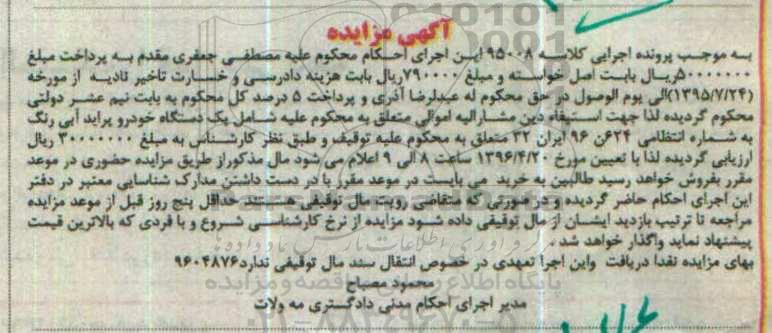 آگهی مزایده
به موجب پرونده اجرایی کلاسه ۹۵۰۰۸ این اجرای احکام محکوم علیه مصطفی جعفری مقدم به پرداخت مبلغ
۵۰۰۰۰۰۰۰ریال بابت اصل خواسته و مبلغ ۷۹۰۰۰۰ریال بابت هزینه دادرسی و خسارت تاخیر تادیه از مورخه
(۱۳۹۵/۷/۲۴)الی یوم الوصول در حق محکوم له عبدلرضا آذری و پرداخت ۵ درصد کل محکوم به بابت نیم عشر دولتی
محکوم گردیده لذا جهت استیفاء دین مشارالیه اموالی متعلق به محکوم علیه شامل یک دستگاه خودرو پراید آبی رنگ
به شماره انتظامی ۶۲۴ن ۹۶ ایران ۳۲ متعلق به محکوم علیه توقیف و طبق نظر کارشناس به مبلغ ۳۰۰۰۰۰۰۰ ریال
ارزیابی گردیده لذا با تعیین مورخ ۱۳۹۶/۴/۲۰ ساعت ۸ الی ۹ اعلام می شود مال مذکوراز طریق مزایده حضوری در موعد
مقرر بفروش خواهد رسید طالبین به خرید می بایست در موعد مقرر با در دست داشتن مدارک شناسایی معتبر در دفتر
این اجرای احکام حاضر گردیده و در صورتی که متقاضی رویت مال توقیفی هستند حداقل پنج روز قبل از موعد مزایده
مراجعه تا ترتیب بازدید ایشان از مال توقیفی داده شود مزایده از نرخ کارشناسی شروع و با فردی که بالاترین قیمت
پیشنهاد نماید واگذار خواهد شد
بهای مزایده نقدا دریافت واین اجرا تعهدی در خصوص انتقال سند مال توقیفی ندارد۹۶۰۴۸۷۶
محمود مصباح
مدیر اجرای احکام مدنی دادگستری مه ولات